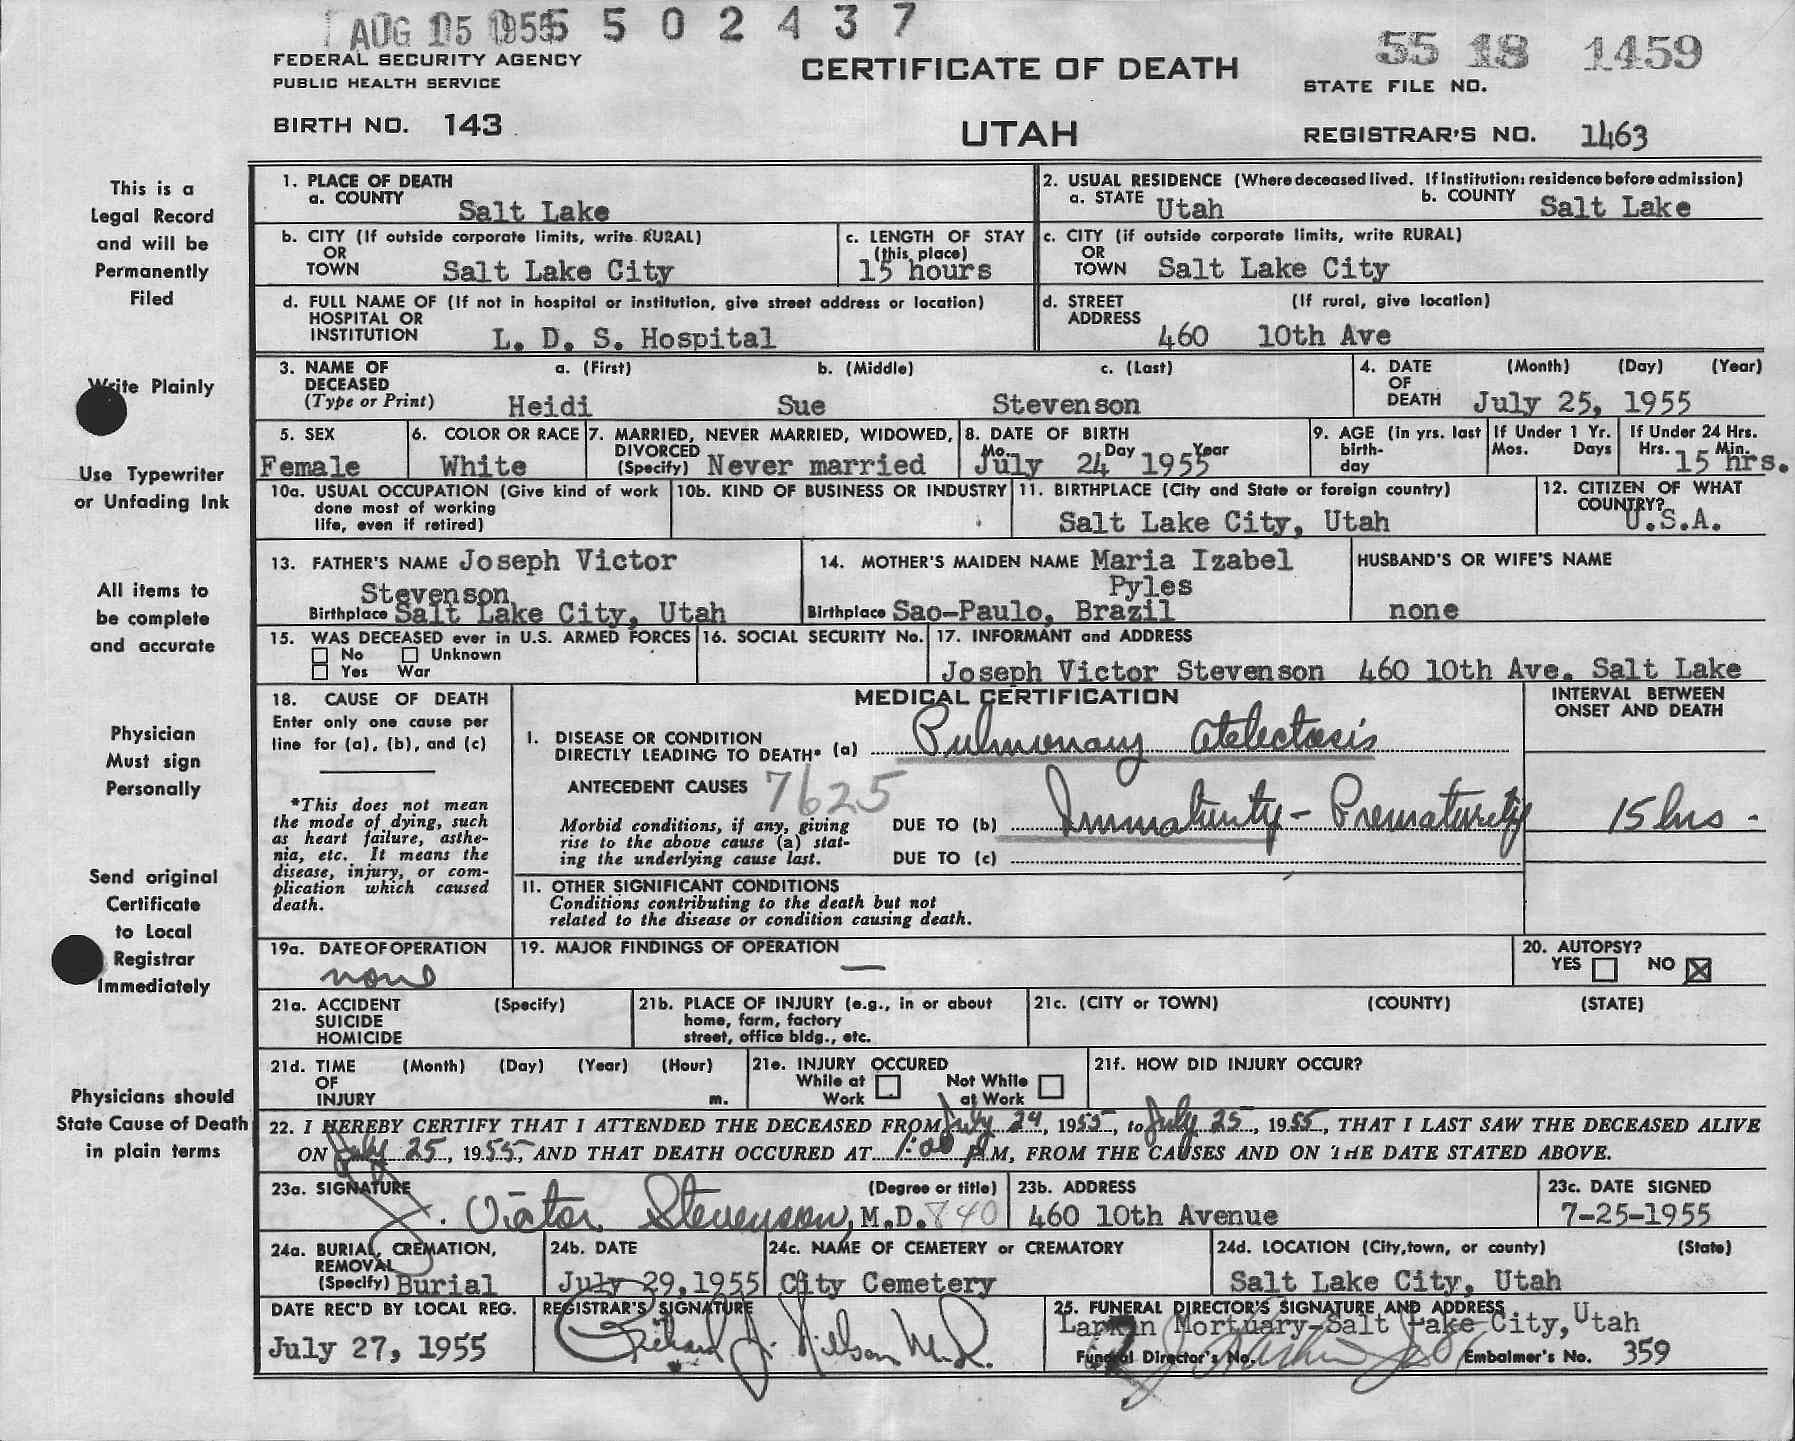 AUG 15 1955 5 5 0 2 4 3 7
55 18 1459
FEDERAL SECURITY AGENCY
PUBLIC HEALTH SERVICE
CERTIFICATE OF DEATH
STATE FILE NO.
BIRTH NO. 143
UTAH
REGISTRAR'S NO. 1463
This is a
Legal Record
and will be
Permanently
Filed
Write Plainly
Use Typewriter
or Unfading Ink
All items to
be complete
and accurate
Physician
Must sign
Personally
Send original
Certificate
to Local
Registrar
Immediately
Physicians should
State Cause of Death
in plain terms
1. PLACE OF DEATH
a. COUNTY
Salt Lake
2. USUAL RESIDENCE (Where deceased lived. If institution: residence before admission)
a. STATE Utah b. COUNTY Salt Lake
b. CITY (If outside corporate limits, write RURAL)
OR
TOWN Salt Lake City
c. LENGTH OF STAY
(this place)
15 hours
c. CITY (if outside corporate limits, write RURAL)
OR
TOWN Salt Lake City
d. FULL NAME OF (If not in hospital or institution, give street address or location)
HOSPITAL OR
INSTITUTION L. D. S. Hospital
d. STREET (If rural, give location)
ADDRESS
460 10th Ave
3. NAME OF a. (First) b. (Middle) c. (Last)
DECEASED
(Type or Print) Heidi Sue Stevenson
4. DATE (Month) (Day) (Year)
OF
DEATH July 25, 1955
5. SEX
Female
6. COLOR OR RACE
White
7. MARRIED, NEVER MARRIED, WIDOWED,
DIVORCED
(Specify) Never married
8. DATE OF BIRTH
Mo. Day Year
July 24 1955
9. AGE (in yrs. last
birth-
day
If Under 1 Yr.
Mos. Days
If Under 24 Hrs.
Hrs. Min.
15 hrs.
10a. USUAL OCCUPATION (Give kind of work
done most of working
life, even if retired)
10b. KIND OF BUSINESS OR INDUSTRY
11. BIRTHPLACE (City and State or foreign country)
Salt Lake City, Utah
12. CITIZEN OF WHAT
COUNTRY?
U.S.A.
13. FATHER'S NAME Joseph Victor
Stevenson
Birthplace Salt Lake City, Utah
14. MOTHER'S MAIDEN NAME Maria Izabel
Pyles
Birthplace Sao-Paulo, Brazil
HUSBAND'S OR WIFE'S NAME
none
15. WAS DECEASED ever in U.S. ARMED FORCES
No Unknown
Yes War
16. SOCIAL SECURITY No.
17. INFORMANT and ADDRESS
Joseph Victor Stevenson 460 10th Ave. Salt Lake
18. CAUSE OF DEATH
Enter only one cause per
line for (a), (b), and (c)
*This does not mean
the mode of dying, such
as heart failure, asthe-
nia, etc. It means the
disease, injury, or com-
plication which caused
death.
MEDICAL CERTIFICATION
INTERVAL BETWEEN
ONSET AND DEATH
I. DISEASE OR CONDITION
DIRECTLY LEADING TO DEATH* (a) Pulmonary Atelectasis
ANTECEDENT CAUSES 7625
Morbid conditions, if any, giving
rise to the above cause (a) stat-
ing the underlying cause last.
DUE TO (b) Immaturity - Prematurity 15 hrs.
DUE TO (c)
II. OTHER SIGNIFICANT CONDITIONS
Conditions contributing to the death but not
related to the disease or condition causing death.
19a. DATE OF OPERATION
none
19. MAJOR FINDINGS OF OPERATION
—
20. AUTOPSY?
YES NO
21a. ACCIDENT (Specify)
SUICIDE
HOMICIDE
21b. PLACE OF INJURY (e.g., in or about
home, farm, factory
street, office bldg., etc.
21c. (CITY or TOWN) (COUNTY) (STATE)
21d. TIME (Month) (Day) (Year) (Hour)
OF
INJURY m.
21e. INJURY OCCURED
While at Work Not While at Work
21f. HOW DID INJURY OCCUR?
22. I HEREBY CERTIFY THAT I ATTENDED THE DECEASED FROM July 24, 1955, to July 25, 1955, THAT I LAST SAW THE DECEASED ALIVE
ON July 25, 1955, AND THAT DEATH OCCURED AT 1:00 PM, FROM THE CAUSES AND ON THE DATE STATED ABOVE.
23a. SIGNATURE (Degree or title)
J. Victor Stevenson, M.D. 840
23b. ADDRESS
460 10th Avenue
23c. DATE SIGNED
7-25-1955
24a. BURIAL, CREMATION,
REMOVAL
(Specify) Burial
24b. DATE
July 29, 1955
24c. NAME OF CEMETERY or CREMATORY
City Cemetery
24d. LOCATION (City, town, or county) (State)
Salt Lake City, Utah
DATE REC'D BY LOCAL REG.
July 27, 1955
REGISTRAR'S SIGNATURE
Richard J. Nilson M.D.
25. FUNERAL DIRECTOR'S SIGNATURE AND ADDRESS
Larkin Mortuary-Salt Lake City, Utah
Funeral Director's No. Embalmer's No. 359